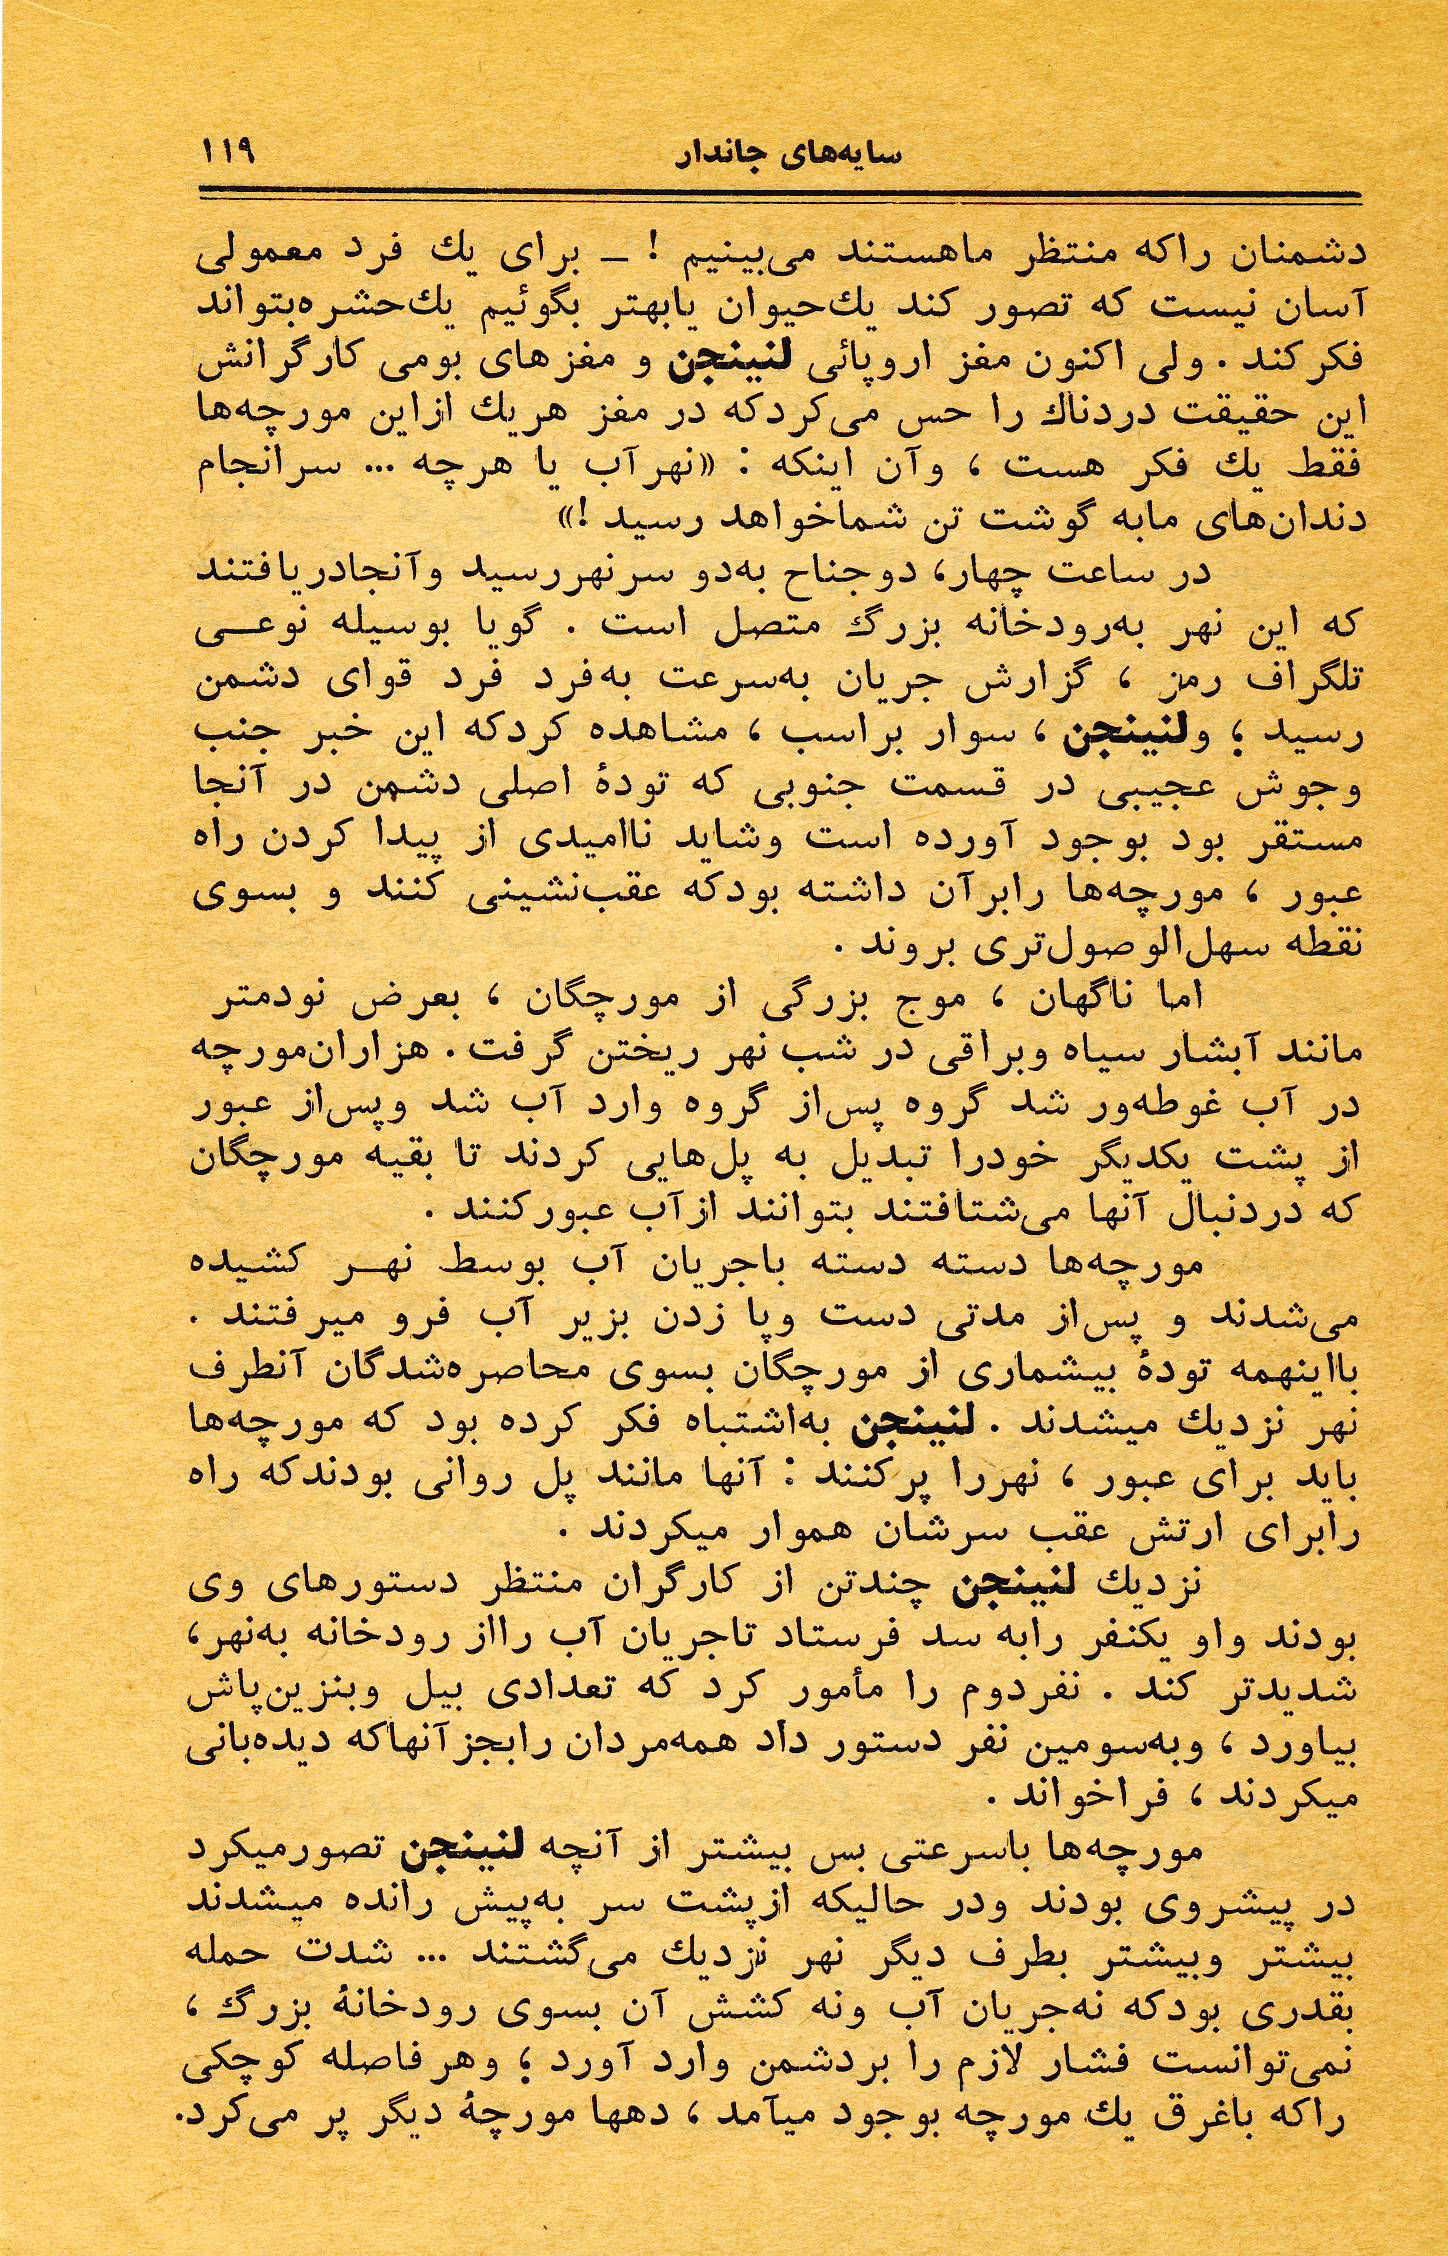 سایه‌های جاندار ۱۱۹
دشمنان راکه منتظر ماهستند می‌بینیم ! ـ برای یك فرد معمولی
آسان نیست که تصور کند یك‌حیوان یابهتر بگوئیم یك‌حشره‌بتواند
فکرکند . ولی اکنون مغز اروپائی لنینجن و مغزهای بومی کارگرانش
این حقیقت دردناك را حس می‌کردکه در مغز هریك ازاین مورچه‌ها
فقط یك فکر هست ، وآن اینکه : «نهرآب یا هرچه ... سرانجام
دندان‌های مابه گوشت تن شماخواهد رسید !»
در ساعت چهار، دوجناح به‌دو سرنهررسید وآنجادریافتند
که این نهر به‌رودخانه بزرگ متصل است . گویا بوسیله نوعـی
تلگراف رمز ، گزارش جریان به‌سرعت به‌فرد فرد قوای دشمن
رسید ؛ ولنینجن ، سوار براسب ، مشاهده کردکه این خبر جنب
وجوش عجیبی در قسمت جنوبی که تودهٔ اصلی دشمن در آنجا
مستقر بود بوجود آورده است وشاید ناامیدی از پیدا کردن راه
عبور ، مورچه‌ها رابرآن داشته بودکه عقب‌نشینی کنند و بسوی
نقطه سهل‌الوصول‌تری بروند .
اما ناگهان ، موج بزرگی از مورچگان ، بعرض نودمتر
مانند آبشار سیاه وبراقی در شب نهر ریختن گرفت . هزاران‌مورچه
در آب غوطه‌ور شد گروه پس‌از گروه وارد آب شد وپس‌از عبور
از پشت یکدیگر خودرا تبدیل به پل‌هایی کردند تا بقیه مورچگان
که دردنبال آنها می‌شتافتند بتوانند ازآب عبورکنند .
مورچه‌ها دسته دسته باجریان آب بوسط نهـر کشیده
می‌شدند و پس‌از مدتی دست وپا زدن بزیر آب فرو میرفتند .
بااینهمه تودهٔ بیشماری از مورچگان بسوی محاصره‌شدگان آنطرف
نهر نزدیك میشدند . لنینجن به‌اشتباه فکر کرده بود که مورچه‌ها
باید برای عبور ، نهررا پرکنند : آنها مانند پل روانی بودندکه راه
رابرای ارتش عقب سرشان هموار میکردند .
نزدیك لنینجن چندتن از کارگران منتظر دستورهای وی
بودند واو یکنفر رابه سد فرستاد تاجریان آب رااز رودخانه به‌نهر،
شدیدتر کند . نفردوم را مأمور کرد که تعدادی بیل وبنزین‌پاش
بیاورد ، وبه‌سومین نفر دستور داد همه‌مردان رابجزآنهاکه دیده‌بانی
میکردند ، فراخواند .
مورچه‌ها باسرعتی بس بیشتر از آنچه لنینجن تصورمیکرد
در پیشروی بودند ودر حالیکه ازپشت سر به‌پیش رانده میشدند
بیشتر وبیشتر بطرف دیگر نهر نزدیك می‌گشتند ... شدت حمله
بقدری بودکه نه‌جریان آب ونه کشش آن بسوی رودخانهٔ بزرگ ،
نمی‌توانست فشار لازم را بردشمن وارد آورد ؛ وهرفاصله کوچکی
راکه باغرق یك مورچه بوجود میآمد ، دهها مورچهٔ دیگر پر می‌کرد.